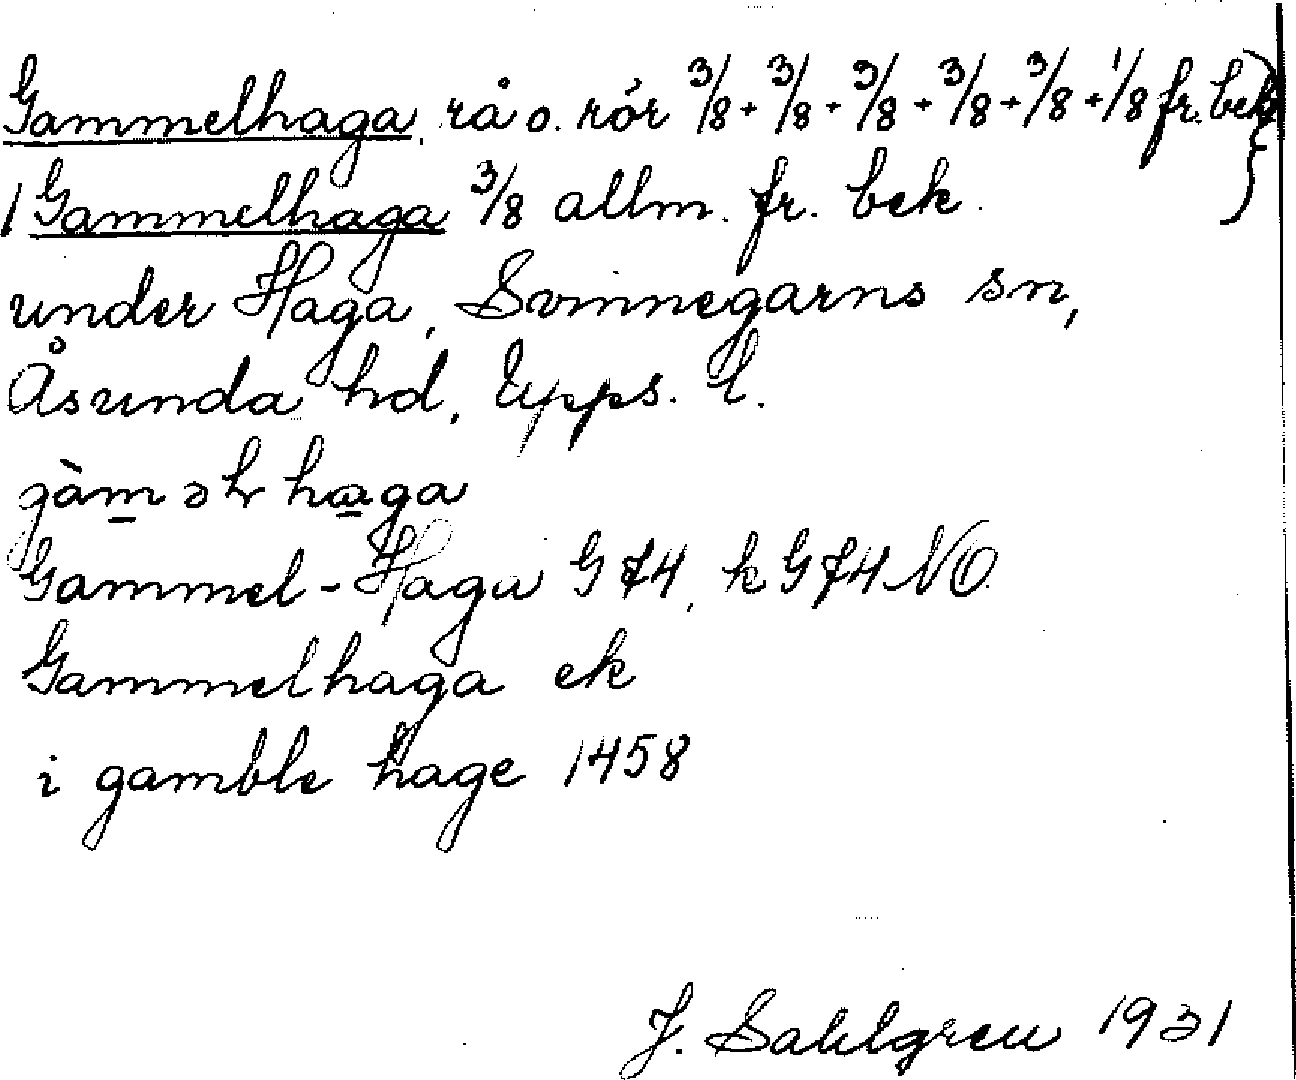 Gammelhaga, rå o. rör 3/8 + 3/8 + 3/8 + 3/8 + 3/8 + 1/8 fr. bek }
1 Gammelhaga 3/8 allm. fr. bek.
under Haga, Svinnegarns sn,
Åsunda hd, Upps. l.
gàm̲əl haga
Gammel-Haga G 74, k G 74 NO
Gammelhaga ek
i gamble hage 1458
J. Sahlgren 1931